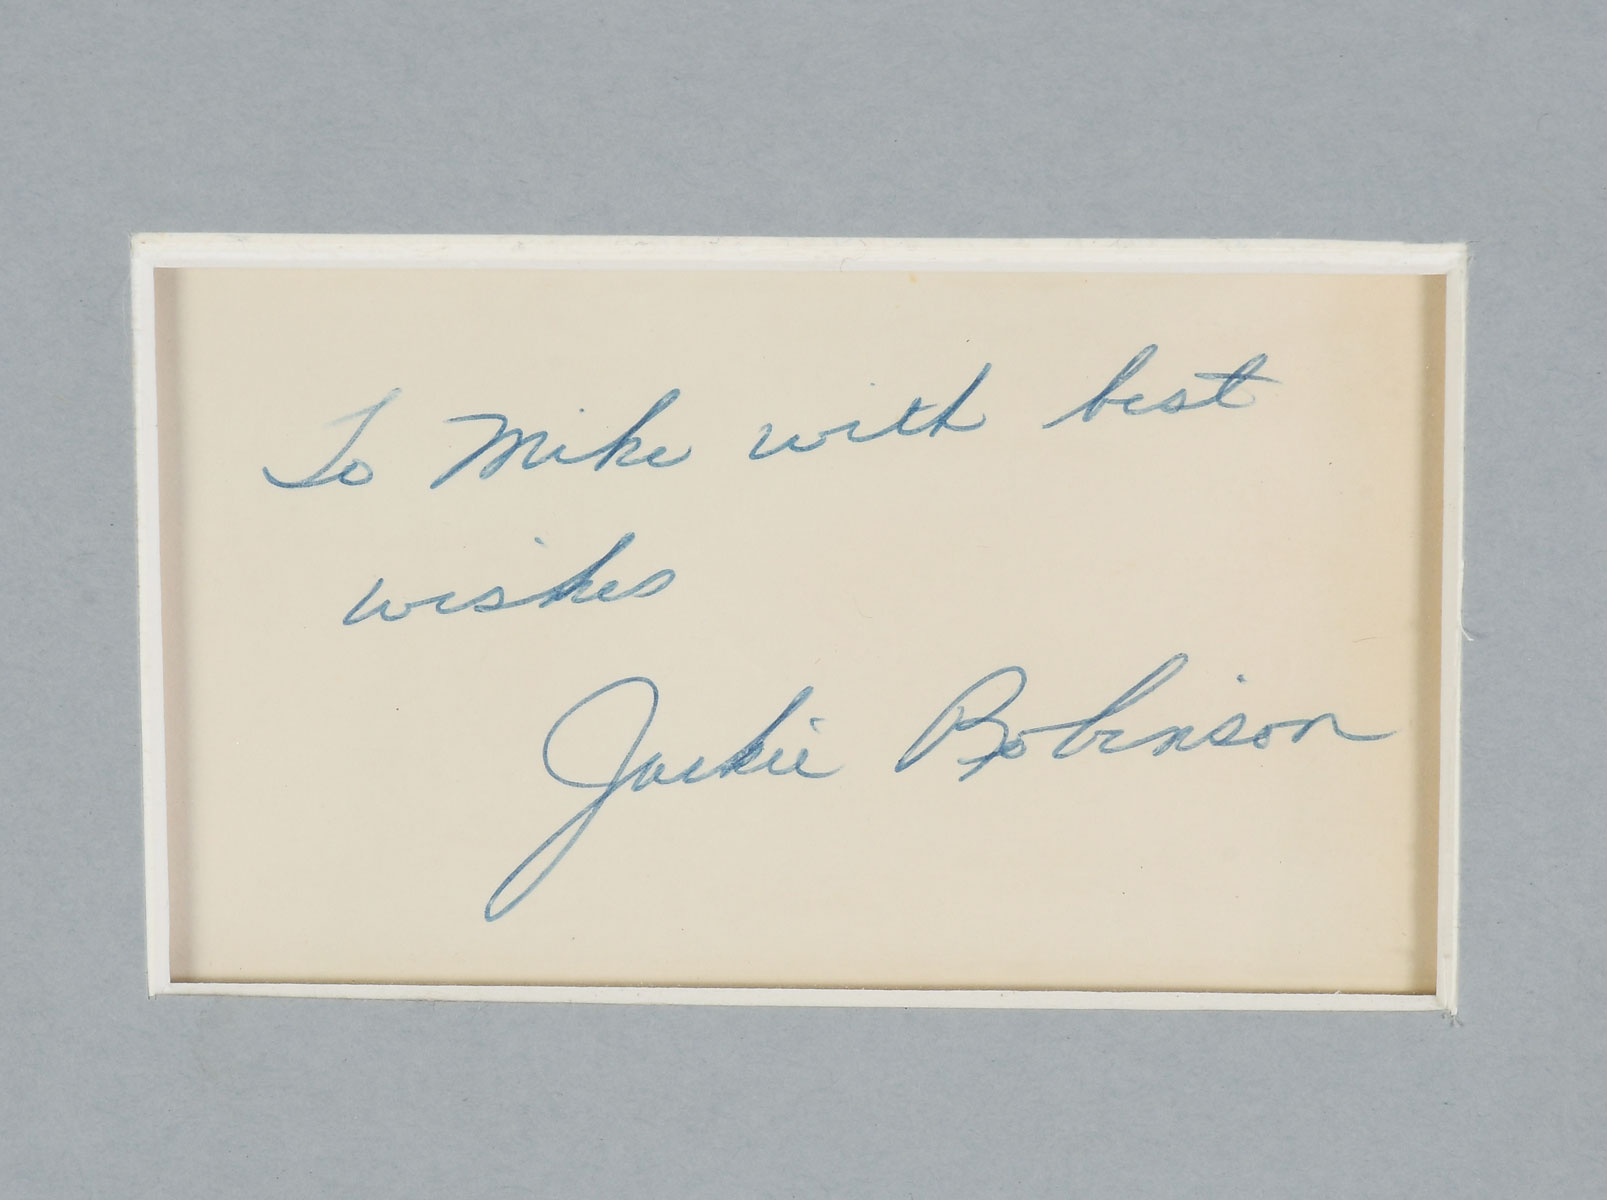 To Mike with best
wishes
Jackie Robinson